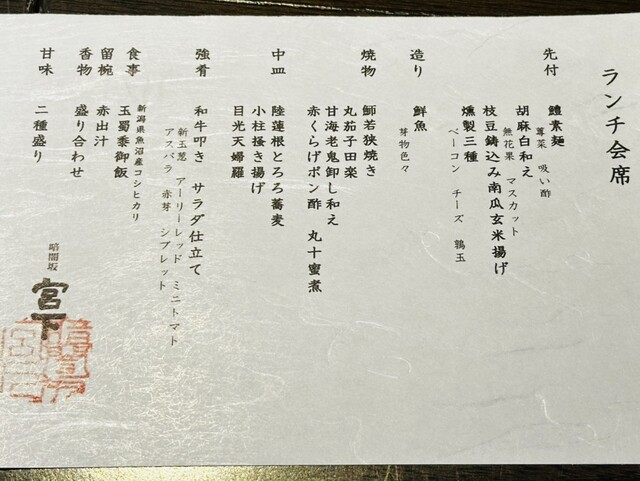 ランチ会席
先付
鱧素麺
蓴菜 吸い酢
胡麻白和え
無花果 マスカット
枝豆鋳込み南瓜玄米揚げ
燻製三種
ベーコン チーズ 鶉玉
造り
鮮魚
芽物色々
焼物
鰤若狭焼き
丸茄子田楽
甘海老鬼卸し和え
赤くらげポン酢 丸十蜜煮
中皿
陸蓮根とろろ蕎麦
小柱掻き揚げ
目光天婦羅
強肴
和牛叩き サラダ仕立て
新玉葱 アーリーレッド ミニトマト
アスパラ 赤芽 シブレット
食事
新潟県魚沼産コシヒカリ
玉蜀黍御飯
留椀
赤出汁
香物
盛り合わせ
甘味
二種盛り
暗闇坂
宮下